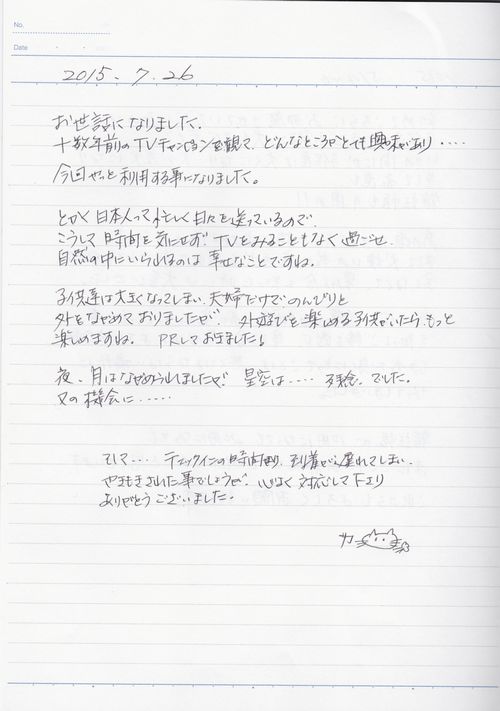 No.
Date
2015. 7. 26
お世話になりました。
十数年前のTVチャンピョンを観て、どんなところかとても興味があり・・・・
今回やっと利用する事になりました。
とかく日本人って忙しく日々を送っているので、
こうして時間を気にせず、TVをみることもなく過ごせ、
自然の中にいられるのは幸せなことですね。
子供達は大きくなってしまい、夫婦だけでのんびりと
外をながめておりましたが、外遊びを楽しめる子供がいたら、もっと
楽しめますね。PRしておきました!
夜、月はながめられましたが、星空は・・・・残念、でした。
又の機会に・・・・・
そして・・・・チェックインの時間より、到着が遅れてしまい、
やきもきされた事でしょうが、心よく対応して下さり
ありがとうございました。